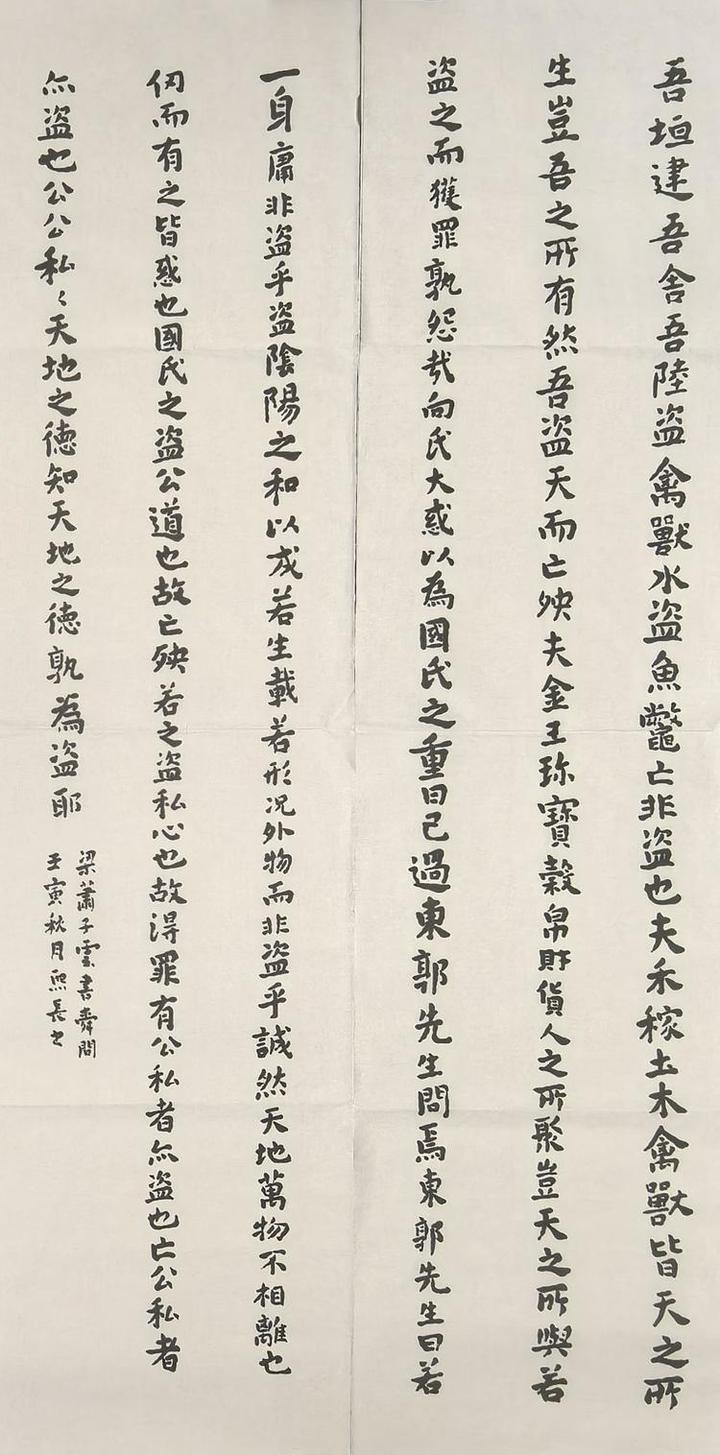 吾垣建吾舍吾陸盗禽獸水盗魚鼈亡非盗也夫禾稼土木禽獸皆天之所
生豈吾之所有然吾盗天而亡殃夫金玉珎寶穀帛財貨人之所聚豈天之所與若
盗之而獲罪孰怨哉向氏大惑以為國氏之重曰己過東郭先生問焉東郭先生曰若
一身庸非盗乎盗陰陽之和以成若生載若形况外物而非盗乎誠然天地萬物不相離也
仞而有之皆惑也國氏之盗公道也故亡殃若之盗私心也故得罪有公私者亦盗也亡公私者
亦盗也公公私〻天地之德知天地之德孰為盗耶
梁蕭子雲書舜問
壬寅秋月熙長书